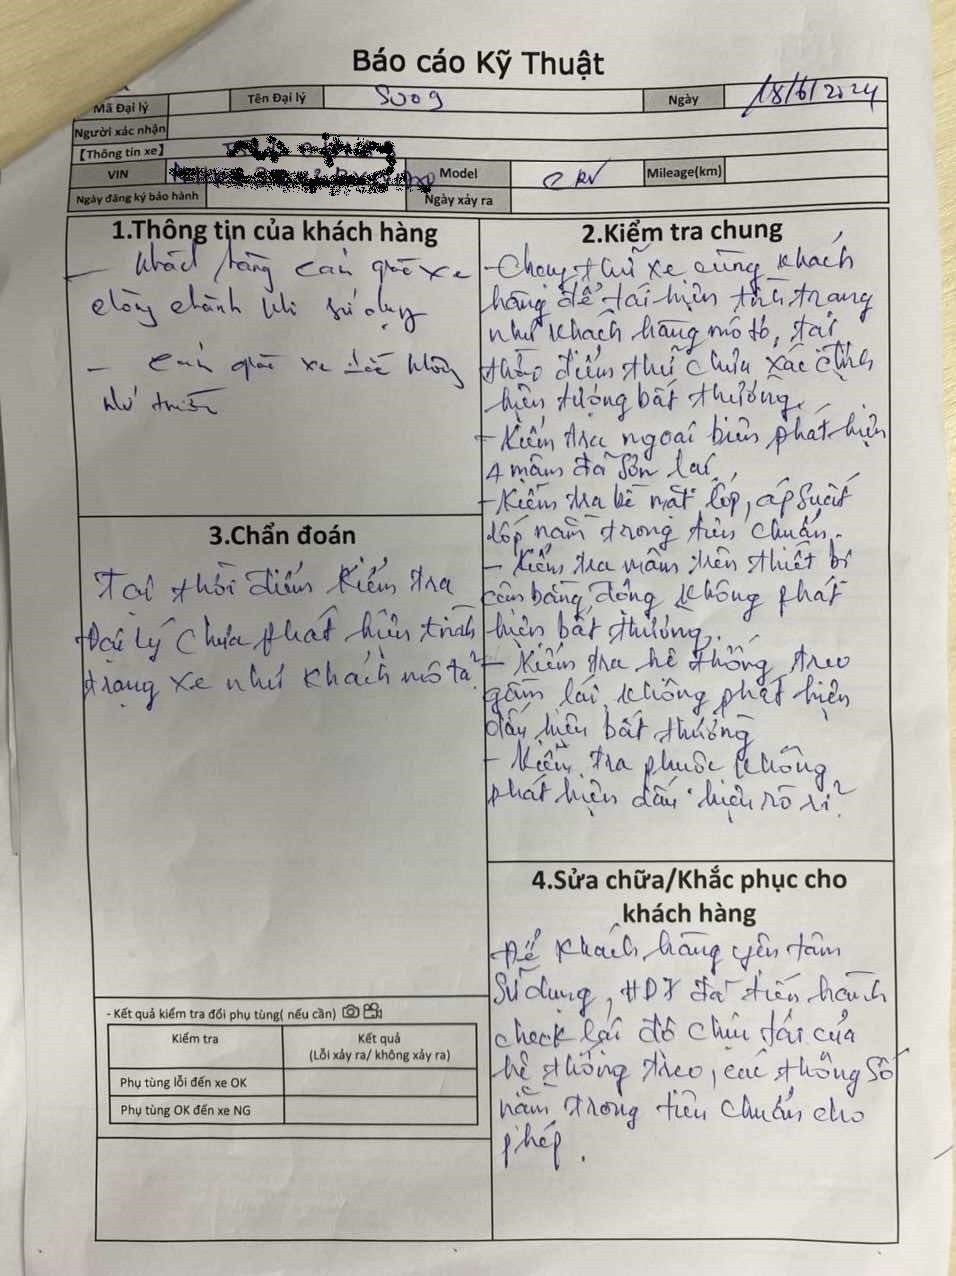 Báo cáo Kỹ Thuật
Mã Đại lý
Tên Đại lý
S009
Ngày
18/6/2024
Người xác nhận
【Thông tin xe】
VIN
Model
CRV
Mileage(km)
Ngày đăng ký bảo hành
Ngày xảy ra
1.Thông tin của khách hàng
- khách hàng cảm giác xe
chòng chành khi sử dụng
- cảm giác xe không
như trước
2.Kiểm tra chung
- Chạy thử xe cùng khách
hàng để tái hiện tình trạng
như khách hàng mô tả, tại
thời điểm thử chưa xác định
hiện tượng bất thường.
- Kiểm tra ngoại biên phát hiện
4 mâm đã sơn lại
- Kiểm tra bề mặt lốp, áp suất
lốp nằm trong tiêu chuẩn.
- Kiểm tra mâm trên thiết bị
cân bằng động không phát
hiện bất thường.
- Kiểm tra hệ thống treo
gầm lái không phát hiện
dấu hiệu bất thường
- Kiểm tra phuộc không
phát hiện dấu hiệu rò rỉ
3.Chẩn đoán
Tại thời điểm kiểm tra
Đại lý chưa phát hiện tình
trạng xe như khách mô tả
4.Sửa chữa/Khắc phục cho
khách hàng
Để khách hàng yên tâm
sử dụng, đã tiến hành
check lại độ chịu tải của
hệ thống treo, các thông số
nằm trong tiêu chuẩn cho
phép.
- Kết quả kiểm tra đổi phụ tùng( nếu cần)
Kiểm tra
Kết quả
(Lỗi xảy ra/ không xảy ra)
Phụ tùng lỗi đến xe OK
Phụ tùng OK đến xe NG